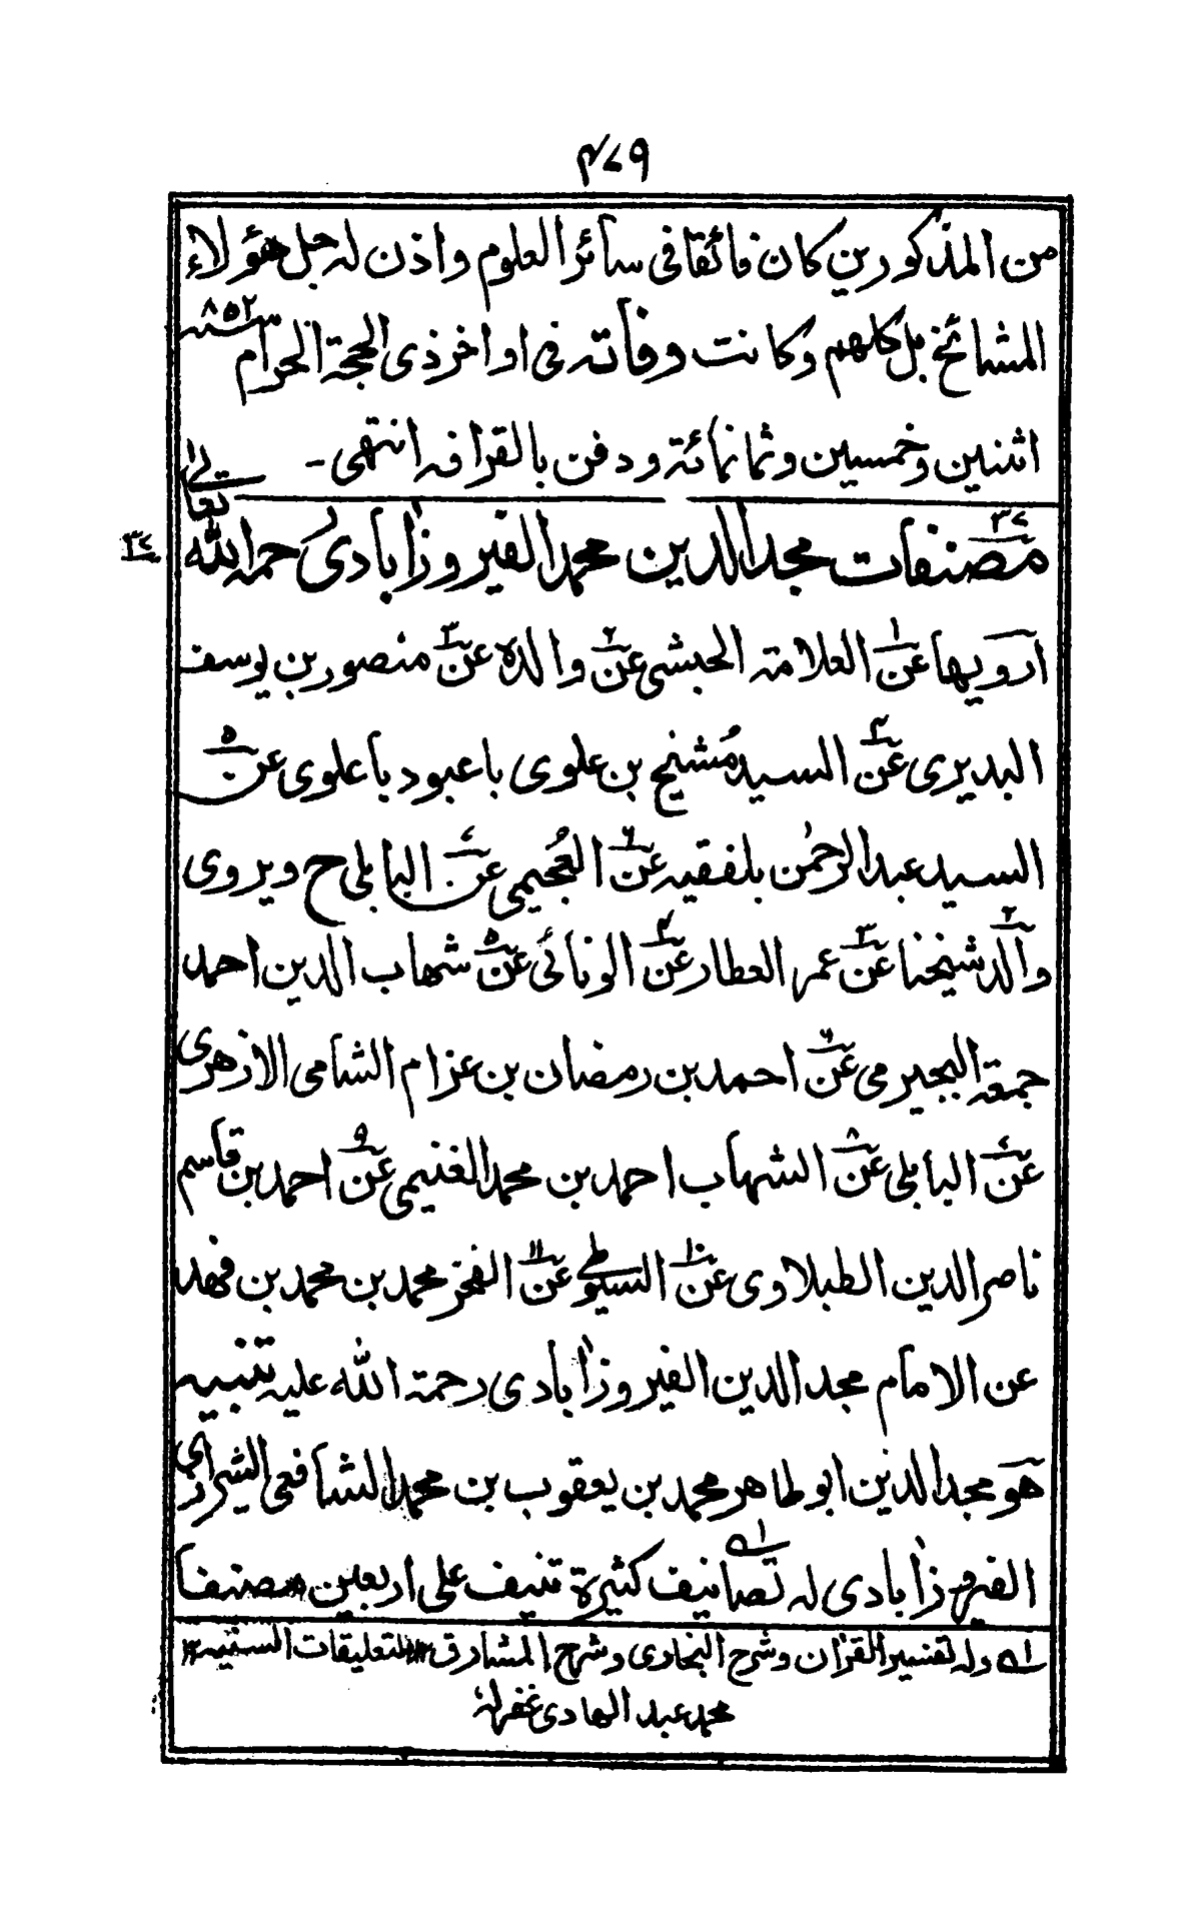 ٤٧٩
من المذكورين كان فائقا فى سائر العلوم واذن له جل هؤلاء
المشائخ بل كلهم وكانت وفاته فى اواخر ذى الحجة الحرام سنة ٨٥٢
اثنين وخمسين وثمانمائة ودفن بالقرافه انتهى -
٣٧ مصنفات مجد الدين محمد الفيروزآبادى رحمه الله تعالى
ارويها عن١ العلامة الحبشى عن٢ والده عن٣ منصور بن يوسف
البديرى عن٤ السيد مُشَيَّخ بن علوى باعبود باعلوى عن٥
السيد عبد الرحمٰن بلفقيه عن٦ العُجيمى عن٧ البابلى ح ويروى
والد٢ شيخنا عن٣ عمر العطار عن٤ الونائى عن٥ شهاب الدين احمد
جمعة البجيرمى عن٦ احمد بن رمضان بن عزام الشامى الازهرى
عن٧ البابلى عن٨ الشهاب احمد بن محمد الغنيمى عن٩ احمد بن قاسم
ناصر الدين الطبلاوى عن١٠ السيوطى عن١١ الفخر محمد بن محمد بن فهد
عن الامام مجد الدين الفيروزآبادى رحمة الله عليه تنبيه
هو مجد الدين ابو طاهر محمد بن يعقوب بن محمد الشافعى الشيرازى
الفيروزآبادى له تصانيف١ كثيرة تنيف على اربعين مصنفا
١ه وله تفسير القرآن وشرح البخارى وشرح المشارق ١٢ التعليقات السنيه ١٢
محمد عبد الهادى غفرلهٗ